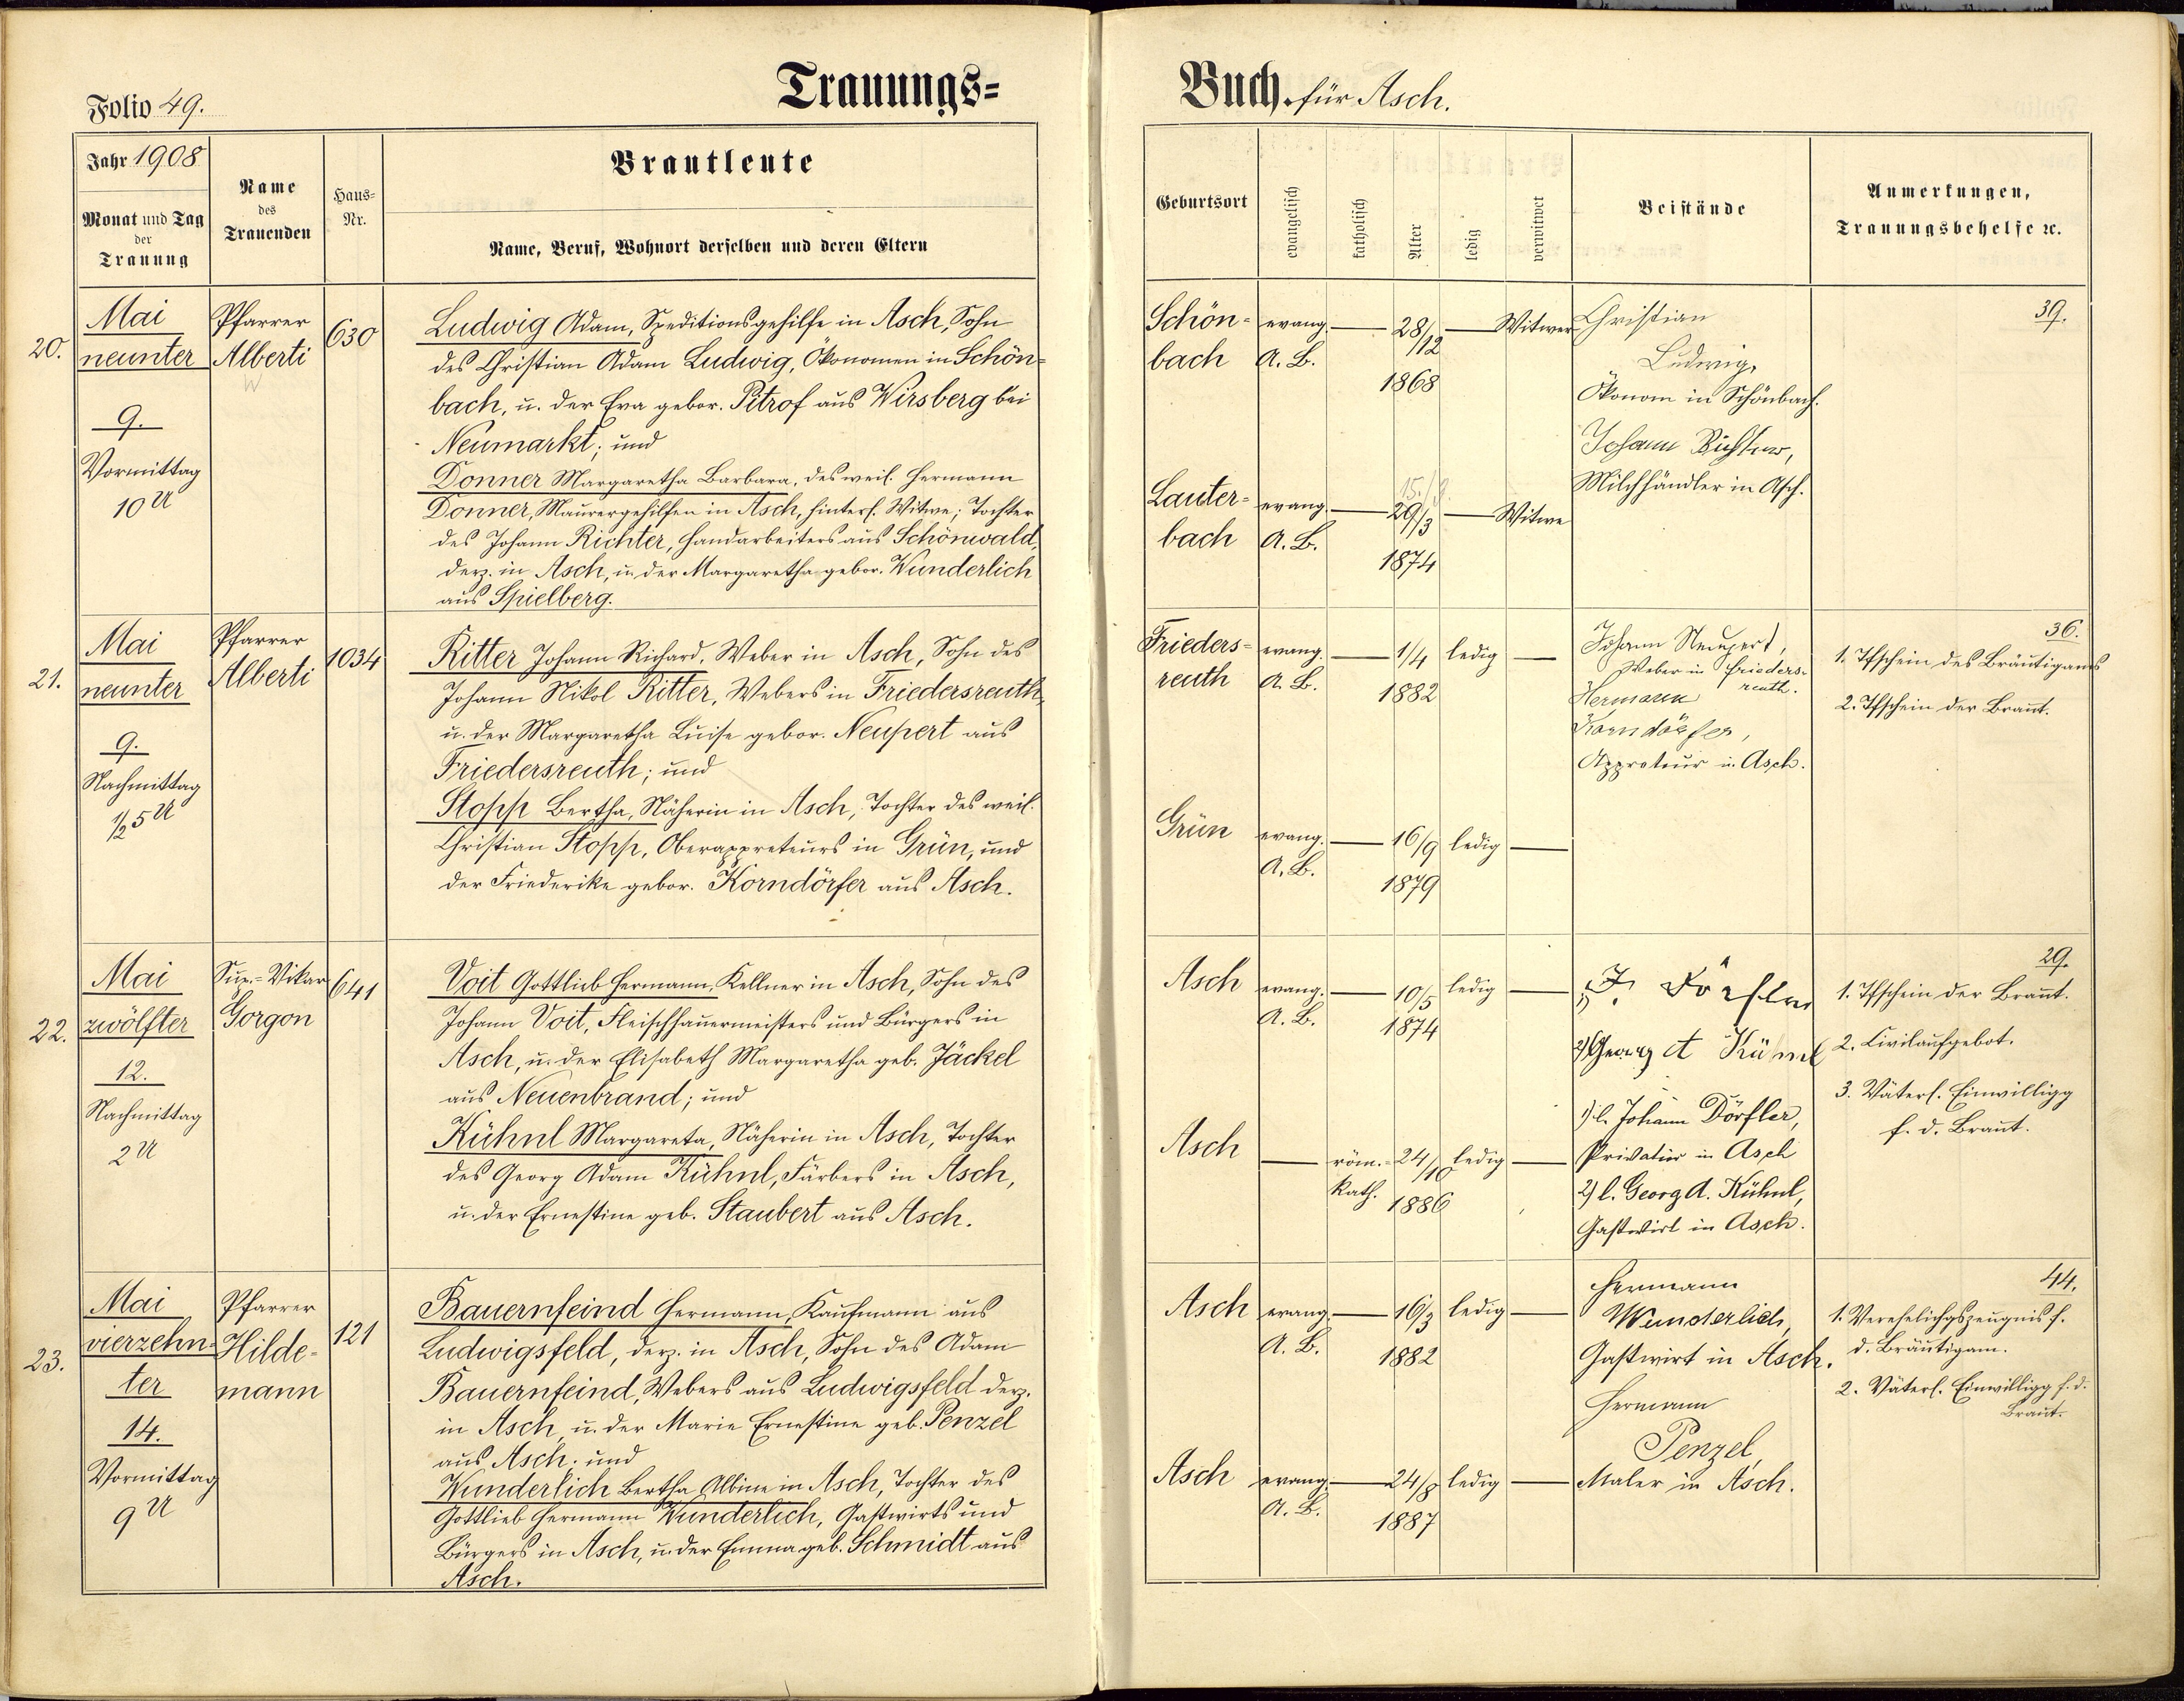 Folio 49.
Trauungs=
Jahr 1908
Monat und Tag
der
Trauung
Name
des
Trauenden
Haus=
Nr.
Brautleute
Name, Beruf, Wohnort derselben und deren Eltern
20.
Mai
neunter
9.
Vormittag
10 U
Pfarrer
Alberti
630
Ludwig Adam, Speditionsgehilfe in Asch, Sohn
des Christian Adam Ludwig, Ökonomen in Schön=
bach, u. der Eva gebor. Pitrof aus Wirsberg bei
Neumarkt; und
Donner Margaretha Barbara, des weil. Hermann
Donner, Maurergehilfen in Asch, hinterl. Witwe; Tochter
des Johann Richter, Handarbeiters aus Schönwald,
derz. in Asch, u. der Margaretha gebor. Wunderlich
aus Spielberg.
21.
Mai
neunter
9.
Nachmittag
1/2 5 U
Pfarrer
Alberti
1034
Ritter Johann Richard, Weber in Asch, Sohn des
Johann Nikol Ritter, Webers in Friedersreuth,
u. der Margaretha Luise gebor. Neupert aus
Friedersreuth; und
Stopp Bertha, Näherin in Asch, Tochter des weil.
Christian Stopp, Oberappreteurs in Grün, und
der Friederike gebor. Korndörfer aus Asch.
22.
Mai
zwölfter
12.
Nachmittag
2 U
Sup.=Vikar
Gorgon
641
Voit Gottlieb Hermann, Kellner in Asch, Sohn des
Johann Voit, Fleischhauermeisters und Bürgers in
Asch, u. der Elisabeth Margaretha geb. Jäckel
aus Neuenbrand; und
Kühnl Margareta, Näherin in Asch, Tochter
des Georg Adam Kühnl, Färbers in Asch,
u. der Ernestine geb. Staubert aus Asch.
23.
Mai
vierzehn=
ter
14.
Vormittag
9 U
Pfarrer
Hilde=
mann
121
Bauernfeind Hermann, Kaufmann aus
Ludwigsfeld, derz. in Asch, Sohn des Adam
Bauernfeind, Webers aus Ludwigsfeld derz.
in Asch, u. der Marie Ernestine geb. Penzel
aus Asch; und
Wunderlich Bertha Albine in Asch, Tochter des
Gottlieb Hermann Wunderlich, Gastwirts und
Bürgers in Asch, u. der Emma geb. Schmidt aus
Asch.
Buch für Asch.
Geburtsort
evangelisch
katholisch
Alter
ledig
verwitwet
Beistände
Anmerkungen,
Trauungsbehelfe ꝛc.
Schön=
bach
evang.
A. B.
28/12
1868
Witwer
Christian
Ludwig,
Ökonom in Schönbach.
Johann Richter,
Milchhändler in Asch.
39.
Lauter=
bach
evang.
A. B.
15./3.
29/3
1874
Witwe
Frieders=
reuth
evang.
A. B.
1/4
1882
ledig
Johann Neupert,
Weber in Frieders=
reuth.
Hermann
Korndörfer,
Appreteur in Asch.
36.
1. Tfschein des Bräutigams
2. Tfschein der Braut.
Grün
evang.
A. B.
16/9
1879
ledig
Asch
evang.
A. B.
10/5
1874
ledig
1) J. Dörfler
2) Georg A Kühnl
1) l. Johann Dörfler,
Privatier in Asch
2) l. Georg A. Kühnl,
Gastwirt in Asch.
29.
1. Tfschein der Braut.
2. Civilaufgebot.
3. Väterl. Einwilligg
f. d. Braut.
Asch
röm.=
kath.
24/10
1886
ledig
Asch
evang.
A. B.
16/3
1882
ledig
Hermann
Wunderlich,
Gastwirt in Asch.
Hermann
Penzel,
Maler in Asch.
44.
1. Verehelichgszeugnis f.
d. Bräutigam.
2. Väterl. Einwilligg f. d.
Braut.
Asch
evang.
A. B.
24/8
1887
ledig